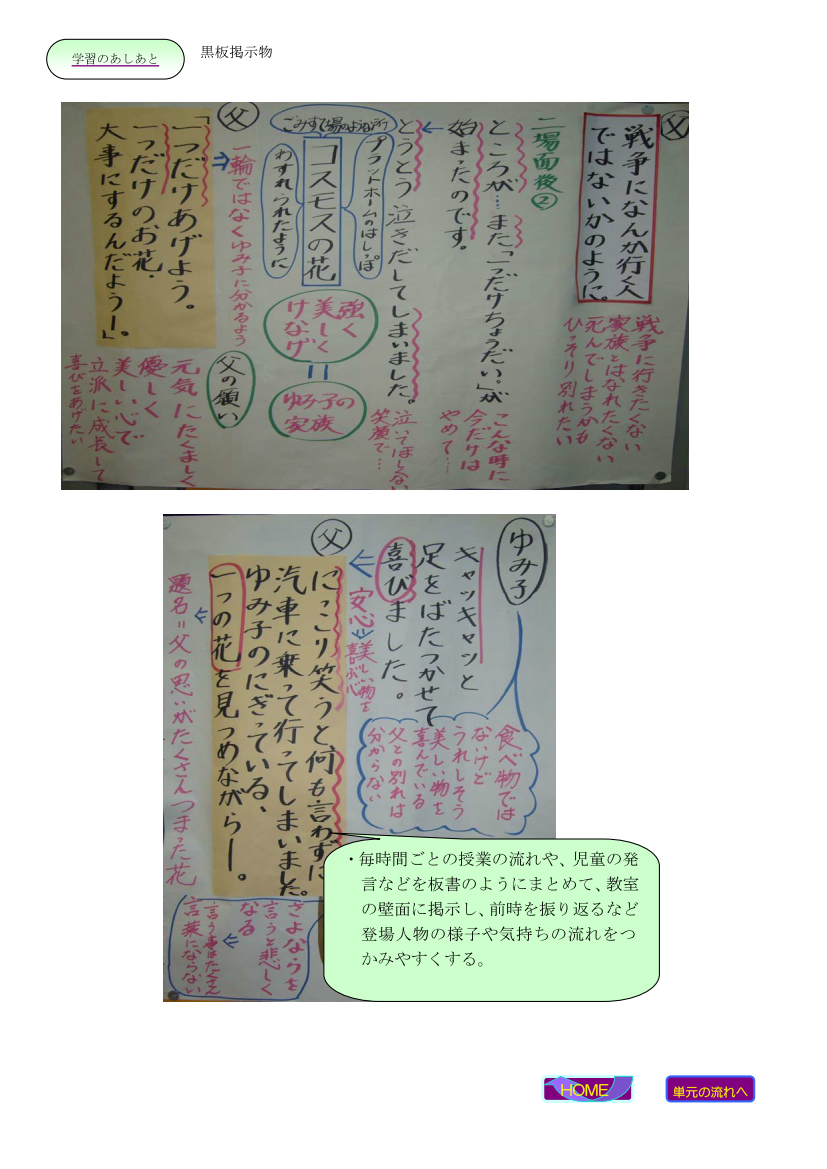 学習のあしあと
黒板掲示物
父
戦争になんか行く人
ではないかのように。
戦争に行きたくない
家族とはなれたくない
死んでしまうかも
ひっそり別れたい
二場面後②
ところが…また「一つだけちょうだい。」が
始まったのです。
こんな時に
今だけは
やめて…
とうとう泣きだしてしまいました。
泣いてほしくない
笑顔で…
ごみすて場のような所
プラットホームのはしっぽ
コスモスの花
わすれられたように
強く
美しく
けなげ
ゆみ子の
家族
父
一輪ではなくゆみ子に分かるよう
「一つだけあげよう。
一つだけのお花、
大事にするんだよう―。」
父の願い
元気にたくましく
優しく
美しい心で
立派に成長して
喜びをあげたい
ゆみ子
キャッキャッと
足をばたつかせて
喜びました。
食べ物では
ないけど
うれしそう
美しい物を
喜んでいる
父との別れは
分からない
父
安心
美しい物を
喜ぶ心
にっこり笑うと何も言わずに
汽車に乗って行ってしまいました。
ゆみ子のにぎっている、
一つの花を見つめながら―。
題名=父の思いがたくさんつまった花
さよならを
言うと悲しく
なる
言う事はたくさん
言葉にならない
・毎時間ごとの授業の流れや、児童の発
言などを板書のようにまとめて、教室
の壁面に掲示し、前時を振り返るなど
登場人物の様子や気持ちの流れをつ
かみやすくする。
HOME
単元の流れへ